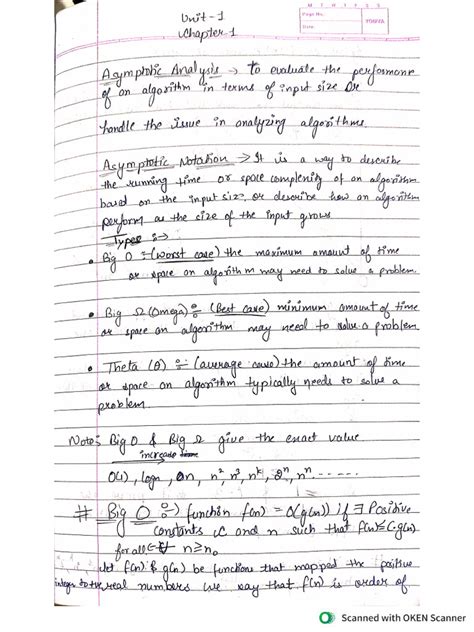 M T W T F S S
Page No.:
Date:
YOUVA
Unit-1
Chapter-1
Asymptotic Analysis → To evaluate the performance
of an algorithm in terms of input size Or
handle the issue in analyzing algorithms.
Asymptotic Notation → It is a way to describe
the running time or space complexity of an algorithm
based on the input size, or describe how an algorithm
perform as the size of the input grows
Types :→
• Big O :- (worst case) the maximum amount of time
or space an algorithm may need to solve a problem.
• Big Ω (Omega) :- (Best case) minimum amount of time
or space an algorithm may need to solve a problem.
• Theta (θ) :- (average case) the amount of time
or space an algorithm typically needs to solve a
problem.
Note: Big O & Big Ω give the exact value
increase time
O(1), logn, n, n² n³, nᵏ, 2ⁿ, nⁿ......
# Big O :-) function f(n) = O(g(n)) if ∃ Positive
constants C and n such that f(n)≤C.g(n)
for all n≥n₀
Let f(n) & g(n) be functions that mapped the positive
integer to the real numbers we say that f(n) is order of
Scanned with OKEN Scanner